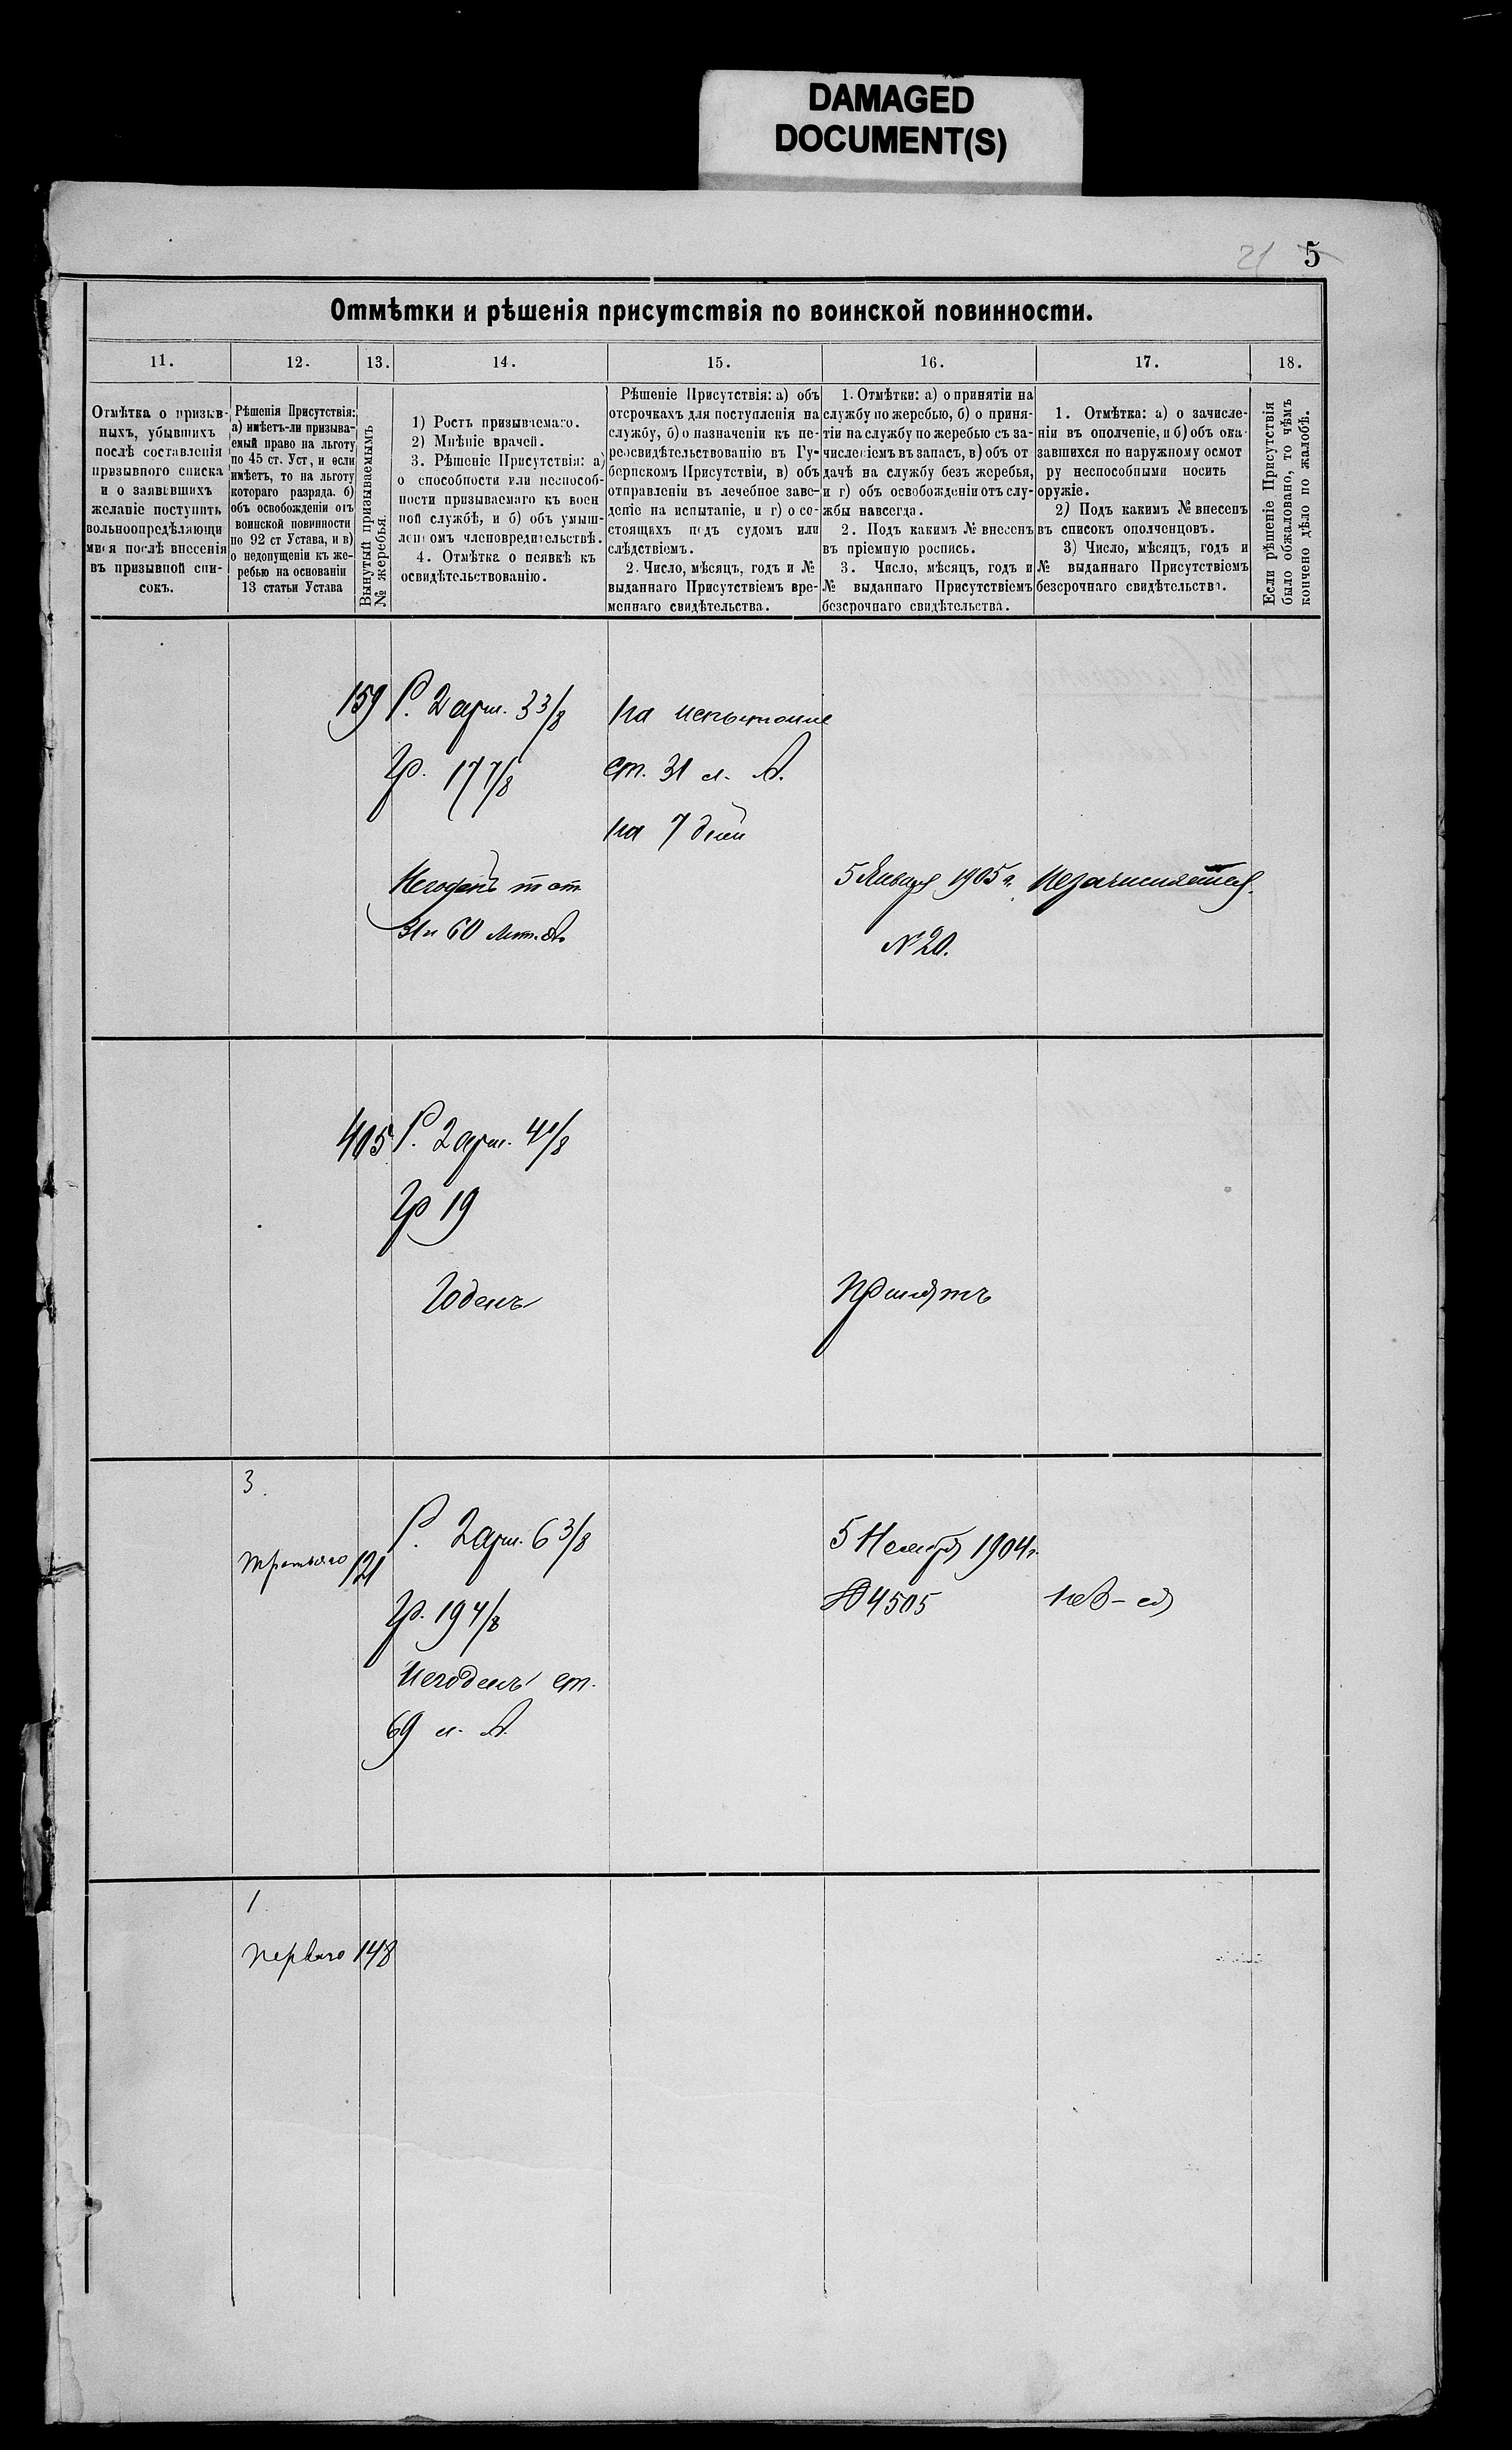 DAMAGED
DOCUMENT(S)
21 5
Отмѣтки и рѣшенія присутствія по воинской повинности.
11. 12. 13. 14. 15. 16. 17. 18.
Отмѣтка о призыв-
ныхъ, убывшихъ
послѣ составленія
призывного списка
и о заявившихъ
желаніе поступить
вольноопредѣляющи
мися послѣ внесенія
въ призывной спи-
сокъ.
Рѣшенія Присутствія:
а) имѣетъ-ли призыва-
емый право на льготу
по 45 ст. Уст, и если
имѣетъ, то на льготу
котораго разряда. б)
объ освобожденіи отъ
воинской повинности
по 92 ст Устава, и в)
о недопущеніи къ же-
ребью на основаніи
13 статьи Устава
Вынутый призываемымъ
№ жеребья.
1) Ростъ призываемаго.
2) Мнѣніе врачей.
3. Рѣшеніе Присутствія: а)
о способности или неспособ-
ности призываемаго къ воен
ной службѣ, и б) объ умыш-
леномъ членовредительствѣ.
4. Отмѣтка о неявкѣ къ
освидѣтельствованію.
Рѣшеніе Присутствія: а) объ
отсрочкахъ для поступленія на
службу, б) о назначеніи къ пе-
реосвидѣтельствованію въ Гу-
бернскомъ Присутствіи, в) объ
отправленіи въ лечебное заве-
деніе на испытаніе, и г) о со-
стоящихъ подъ судомъ или
слѣдствіемъ.
2. Число, мѣсяцъ, годъ и №
выданнаго Присутствіемъ вре-
меннаго свидѣтельства.
1. Отмѣтки: а) о принятіи на
службу по жеребью, б) о приня-
тіи на службу по жеребью съ за-
численіемъ въ запасъ, в) объ от
дачѣ на службу безъ жеребья,
и г) объ освобожденіи отъ слу-
жбы навсегда.
2. Подъ какимъ № внесенъ
въ пріемную роспись.
3. Число, мѣсяцъ, годъ и
№ выданнаго Присутствіемъ
безсрочнаго свидѣтельства.
1. Отмѣтка: а) о зачисле-
ніи въ ополченіе, и б) объ ока
завшихся по наружному осмот
ру неспособными носить
оружіе.
2) Подъ какимъ № внесенъ
въ список ополченцовъ.
3) Число, мѣсяцъ, годъ и
№ выданнаго Присутствіемъ
безсрочнаго свидѣтельства.
Если рѣшеніе Присутствія
было обжаловано, то чѣмъ
кончено дѣло по жалобѣ.
159 Р. 2 арш. 3 3/8 на испытаніе
Гр. 17 7/8 ст. 31 л. А.
на 7 дней
Негоденъ ст
31 и 60 лит. А. 5 Января 1905 г. незачисляется.
№ 20.
405 Р. 2 арш. 4 1/8
Гр 19
Годенъ Принятъ
3.
третьяго 121 Р. 2 арш. 6 3/8 5 Ноября 1904 г.
Гр. 19 4/8 № 4505
Негоденъ ст.
69 л. А.
1
перваго 148